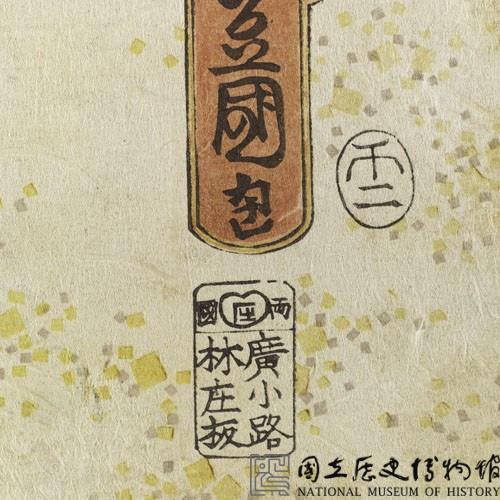 國画
両庄國
廣小路
林庄板
國立歷史博物館
NATIONAL MUSEUM OF HISTORY